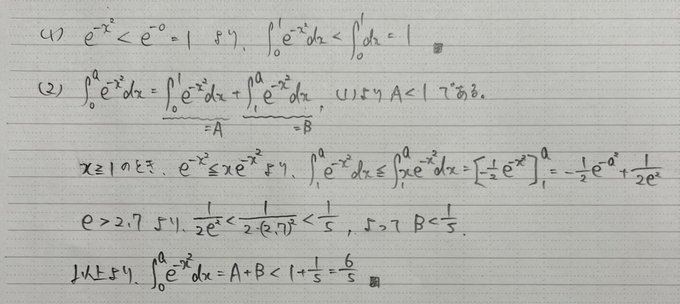 (1) e^{-x²} < e^{-0} = 1 より、∫₀¹ e^{-x²}dx < ∫₀¹ dx = 1 ▨
(2) ∫₀ᵃ e^{-x²}dx = ∫₀¹ e^{-x²}dx + ∫₁ᵃ e^{-x²}dx , (1)より A < 1 である。
=A =B
x ≥ 1 のとき、e^{-x²} ≤ xe^{-x²} より、∫₁ᵃ e^{-x²}dx ≤ ∫₁ᵃ xe^{-x²}dx = [-1/2 e^{-x²}]₁ᵃ = -1/2 e^{-a²} + 1/(2e²)
e > 2.7 より、1/(2e²) < 1/(2·(2.7)²) < 1/5 , よって B < 1/5 .
以上より、∫₀ᵃ e^{-x²}dx = A + B < 1 + 1/5 = 6/5 ▨